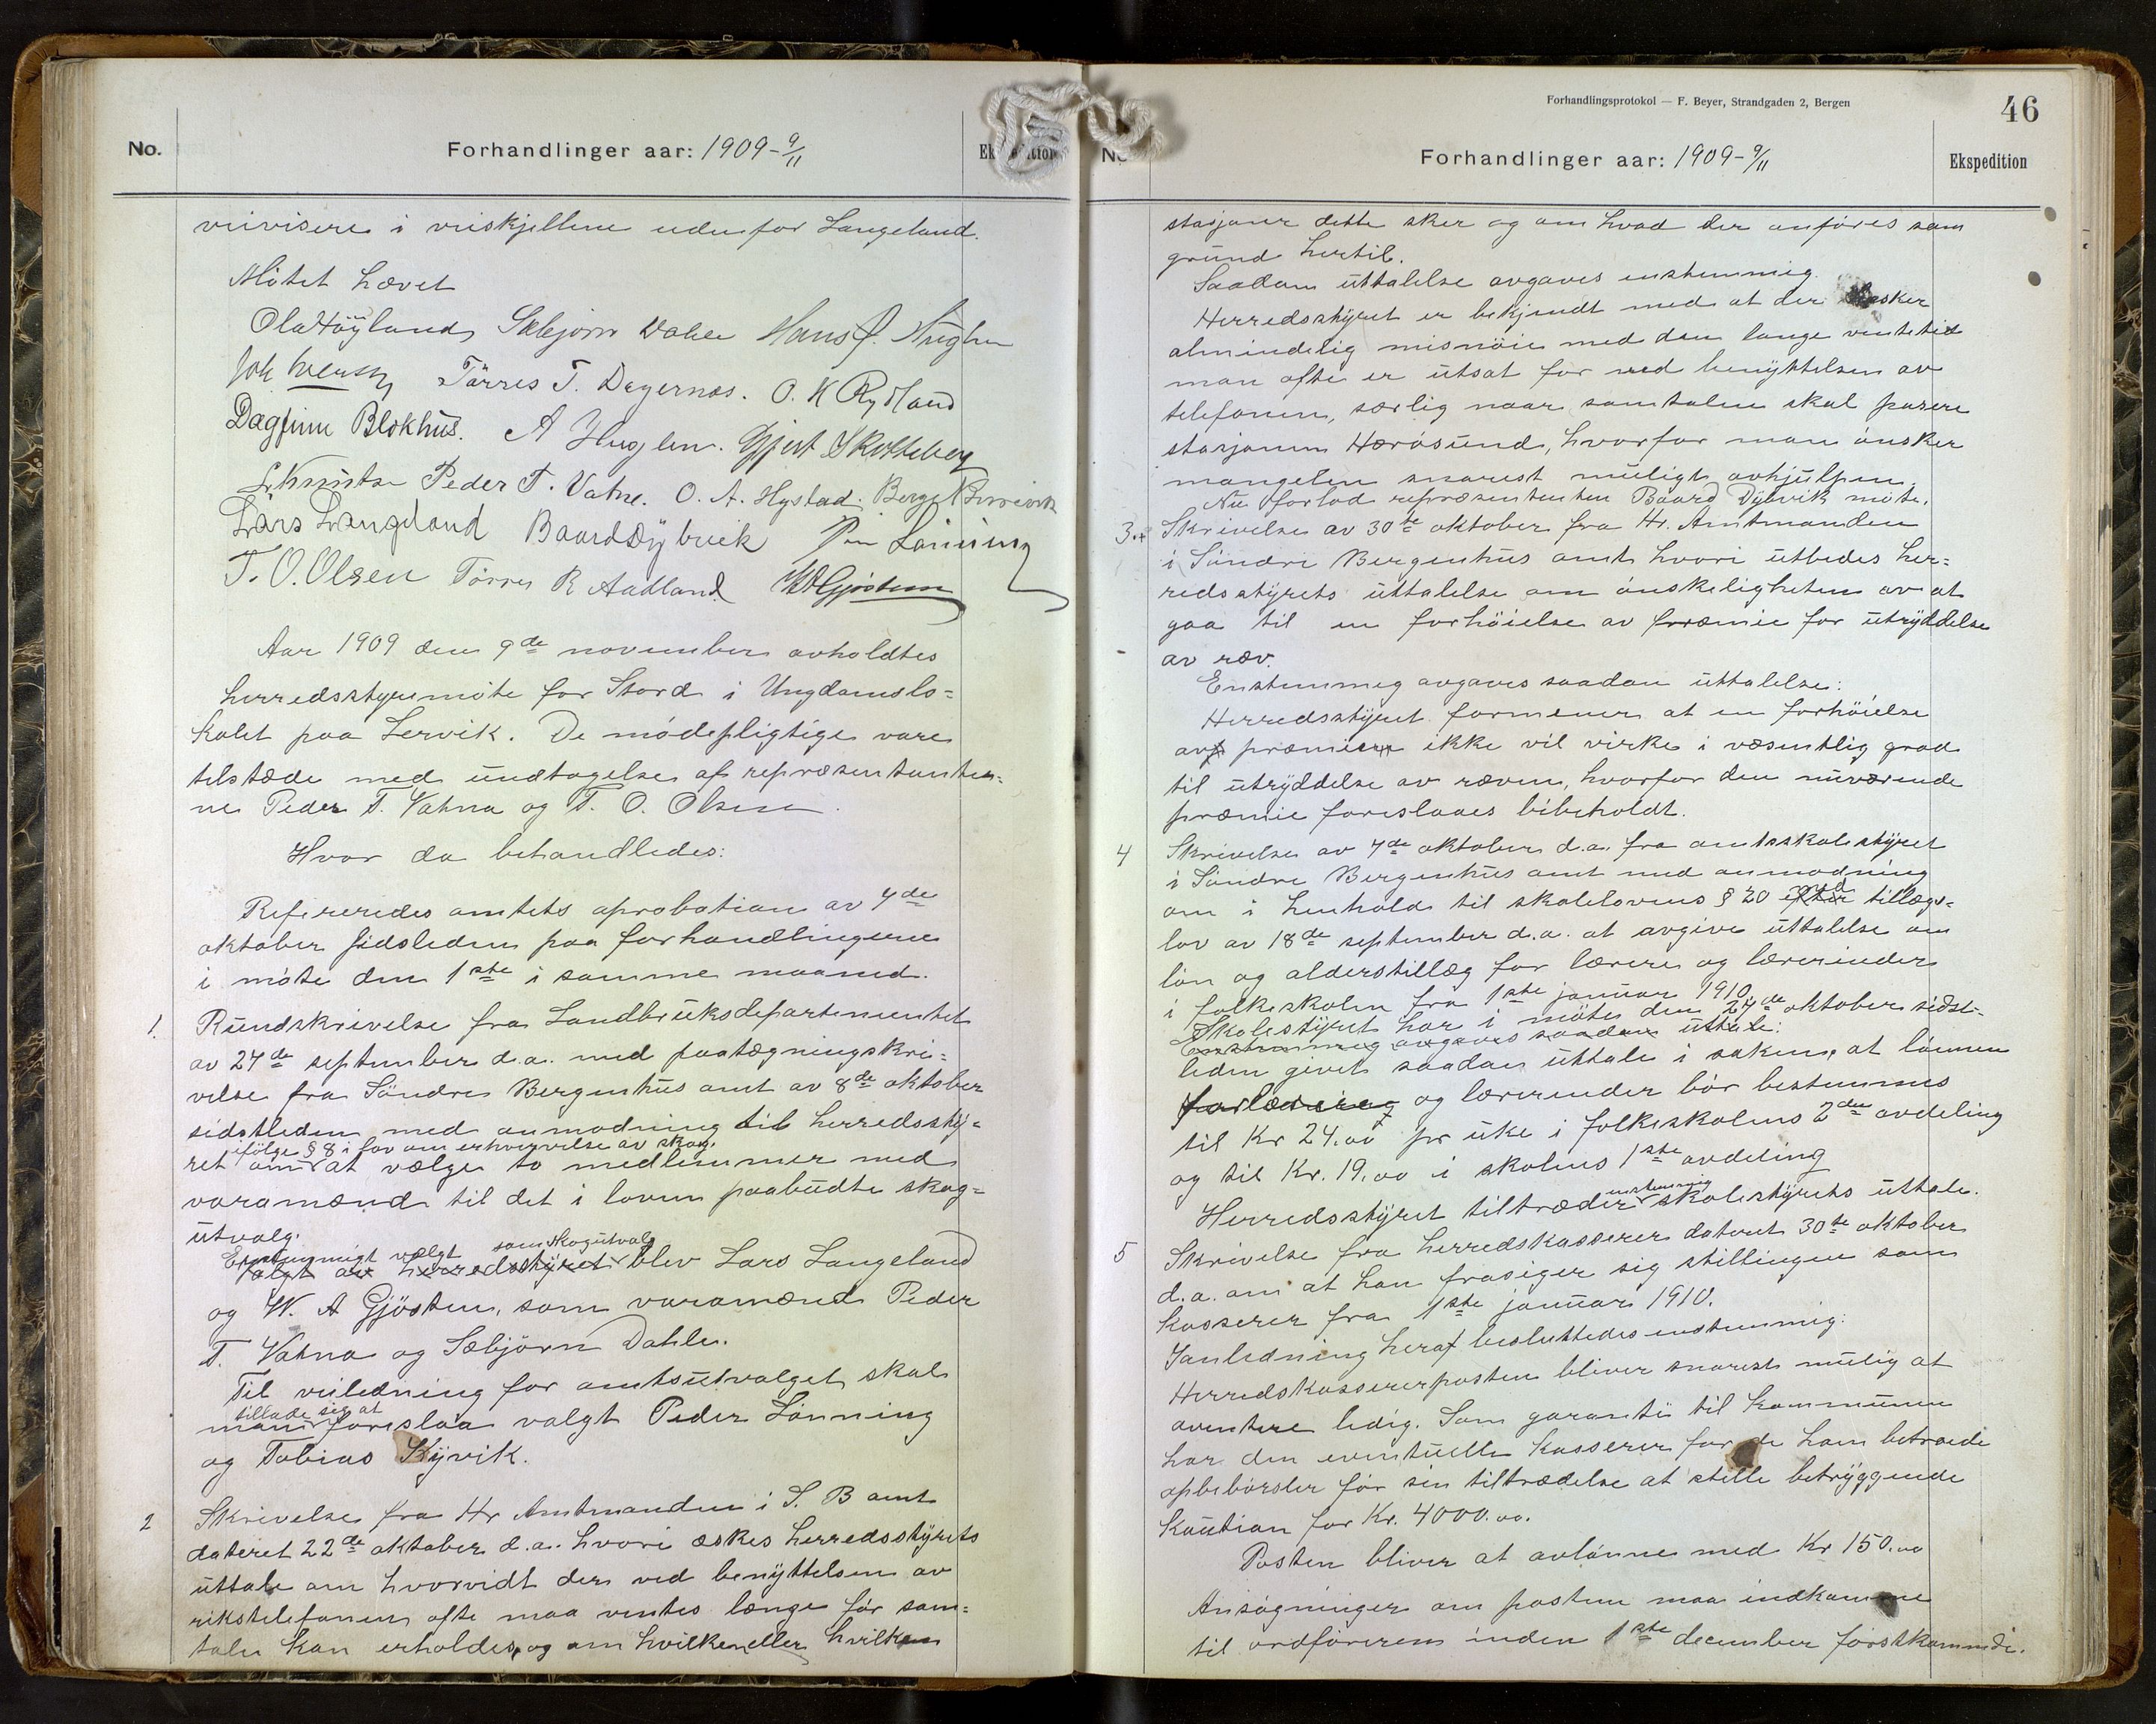 No.
Forhandlinger aar: 1909-9/11
veivisere i veiskjellene udenfor Langeland.
Mötet hævet
Ola Höyland Sebjörn Dahle Hans J. Huglen
Joh Iversen Törres T. Dagernos. O. K Rydland
Dagfinn Blokhus. A Huglen. Gjert Skotteberg
L. Knutsen Peder T. Vatne. O. A. Hystad.
Lars Langeland Baard Dybvik Lönning
T. O. Olsen Törres R Aadland. W A Gjösteen
Aar 1909 den 9de november avholdtes
herredsstyremöte for Stord i Ungdomslo=
kalet paa Lervik. De mödepligtige vare
tilstæde med undtagelse af repræsentanter=
ne Peder T. Vatna og T. O. Olsen.
Hvor da behandledes:
Refereredes amtets aprobation av 7de
oktober sidsleden paa forhandlingerne
i möte den 1ste i samme maaned.
1. Rundskrivelse fra Landbruksdepartementet
av 24de september d.a. med paategningskri=
velse fra Söndre Bergenhus amt av 8de oktober
sidstleden med anmodning til herredssty=
ifölge § 8 i lov om erhvervelse av skog.
ret om at vælge to medlemmer med
varamænd til det i loven paabudte skog=
utvalg.
Enstemmigt valgt som skogutvalg
Valgt av herredsstyret blev Lars Langeland
og W. A Gjösteen, som varamænd Peder
T. Vatna og Sebjörn Dahle.
Til veiledning for amtsutvalget skal
tillade sig at
man foreslaa valgt Peder Lönning
og Tobias Kyvik.
2 Skrivelse fra Hr Amtmanden i S. B amt
dateret 22de oktober d.a. hvori æskes herredsstyrets
uttale om hvorvidt der ved benyttelsen av
rikstelefonen ofte maa ventes længe för sam=
tale kan erholdes, og om hvilken eller hvilken
Forhandlingsprotokol — F. Beyer, Strandgaden 2, Bergen
46
Forhandlinger aar: 1909-9/11
Ekspedition
stasjoner dette sker og om hvad der anföres som
grund hertil.
Saadan uttalelse avgaves enstemmig.
Herredsstyret er bekjendt med at der hersker
almindelig misnöie med den lange ventetid
man ofte er utsat for ved benyttelsen av
telefonen, særlig naar samtalen skal pasere
stasjonen Herösund, hvorfor man önsker
mangelen snarest muligt avhjulpen.
Nu forlod repræsentanten Baard Dybvik möte.
3. Skrivelse av 30te oktober fra Hr. Amtmanden
i Söndre Bergenhus amt hvori utbedes her=
redsstyrets uttalelse om önskeligheten av at
gaa til en forhöielse av præmie for utryddelse
av ræv.
Enstemmig avgaves saadan uttalelse:
Herredsstyret formener at en forhöielse
av præmien ikke vil virke i væsentlig grad
til utryddelse av ræven, hvorfor den nuværende
præmie foreslaaes bibeholdt.
4 Skrivelse av 7de oktober d.a. fra amtsskolestyret
i Söndre Bergenhus amt med anmodning
om i henhold til skolelovens § 20 med tillægs-
lov av 18de september d.a. at avgive uttalelse om
lön og alderstillæg for lærere og lærerinder
i folkeskolen fra 1ste januar 1910.
Skolestyret har i möte den 27de oktober sidst-
Enstemmig avgaves saadan uttale:
leden givet saadan uttale i saken, at lönnen
for lærere og lærerinder bör bestemmes
til Kr 24.00 pr uke i folkeskolens 2den avdeling
og til Kr. 19.00 i skolens 1ste avdeling
enstemmig
Herredsstyret tiltræder skolestyrets uttale.
5 Skrivelse fra herredskasserer dateret 30te oktober
d.a. om at han frasiger sig stillingen som
kasserer fra 1ste januar 1910.
I anledning heraf besluttedes enstemmig:
Herredskassererposten bliver snarest mulig at
avertere ledig. Som garanti til kommunen
har den eventuelle kasserer for de ham betroede
opbebörsler för sin tiltrædelse at stille betryggende
kaution for Kr. 4000.00.
Posten bliver at avlönne med Kr 150.00
Ansögninger om posten maa indkomme
til ordföreren inden 1ste december förstkommende.